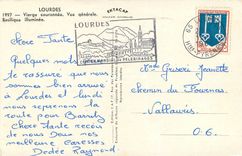 LOURDES
1997 - Vierge couronnée, Vue générale.
Basilique illuminée.
EXTACAP
LOURDES
PELERINAGES
Chere Tante
Quelques mots pour
te rassure que nous sommes
bien arrivé à Lourdes et
lundi nous reprenons
la route pour
Chere Tante recois
de nous Deux nos
meilleur caresses
Dodée Raymond
Mme Griseri Jeannette
Chemin du Fournas
Vallauris
06.